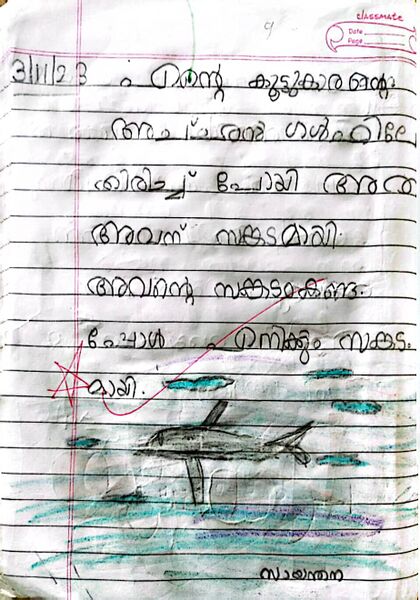 classmate
Date
Page
9
3/11/23 എന്റെ കൂട്ടുകാരന്റെ
അച്ഛൻ ഗൾഫിലേ
തിരിച്ച് പോയി അത
അവന് സങ്കടമായി.
അവന്റെ സങ്കടം കണ്ട
പ്പോൾ എനിക്കും സങ്കട
മായി.
സായന്തന